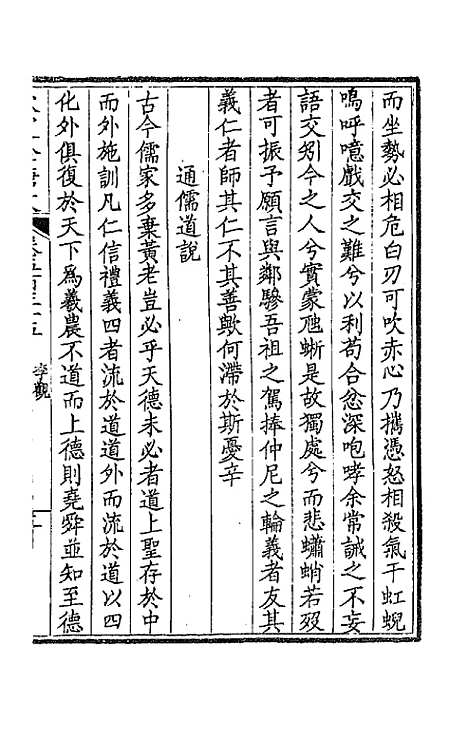 而坐勢必相危白刃可吹赤心乃攜憑怒相殺氣干虹蜺
嗚呼噫戲交之難兮以利苟合忿深咆哮余常誡之不妄
語交矧今之人兮實蒙虺蜥是故獨處兮而悲蠨蛸若歿
者可振予願言與鄰驂吾祖之駕捧仲尼之輪義者友其
義仁者師其仁不其善歟何滯於斯憂辛
通儒道說
古今儒家多棄黃老豈必乎天德未必者道上聖存於中
而外施訓凡仁信禮義四者流於道道外而流於道以四
化外俱復於天下為羲農不道而上德則堯舜並知至德
李觀